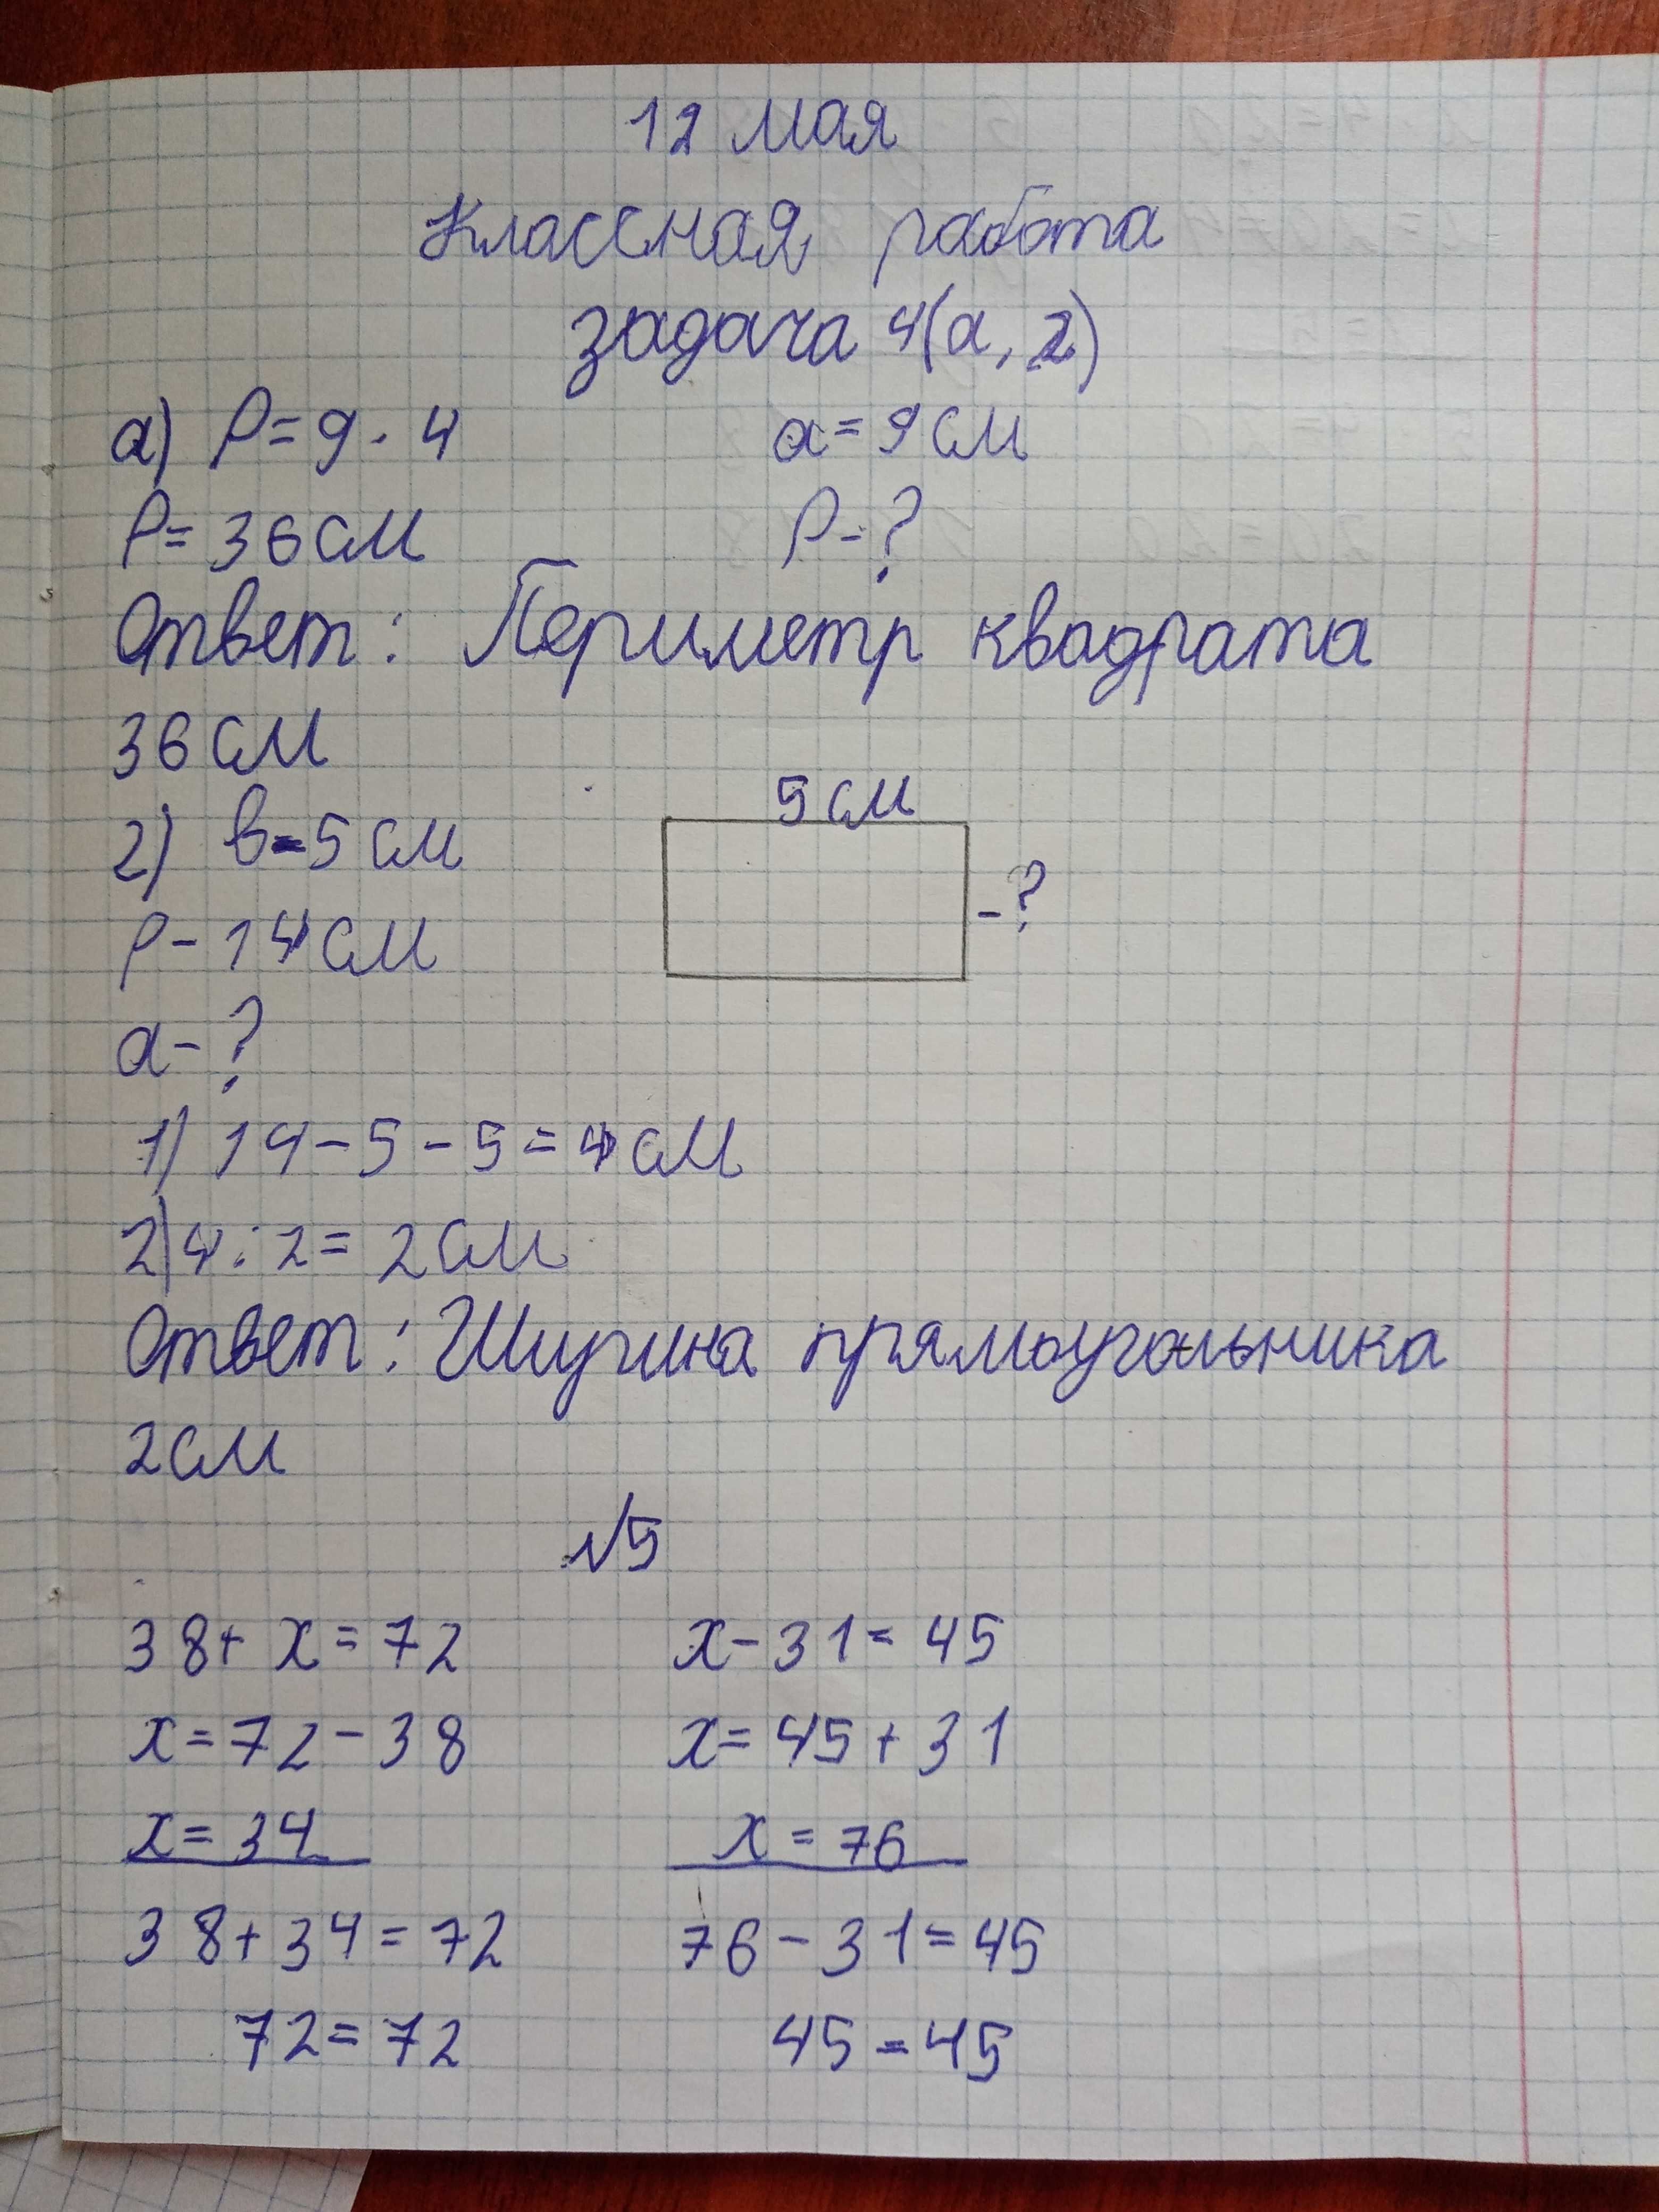 12 мая
Классная работа
задача 4(а, 2)
а) P=9·4 a=9см
P=36см P-?
Ответ: Периметр квадрата
36см
5см
2) в=5см
-?
P-14см
a-?
1) 14-5-5=4см
2) 4:2=2см
Ответ: Ширина прямоугольника
2см
№5
38+x=72 x-31=45
x=72-38 x=45+31
x=34 x=76
38+34=72 76-31=45
72=72 45=45